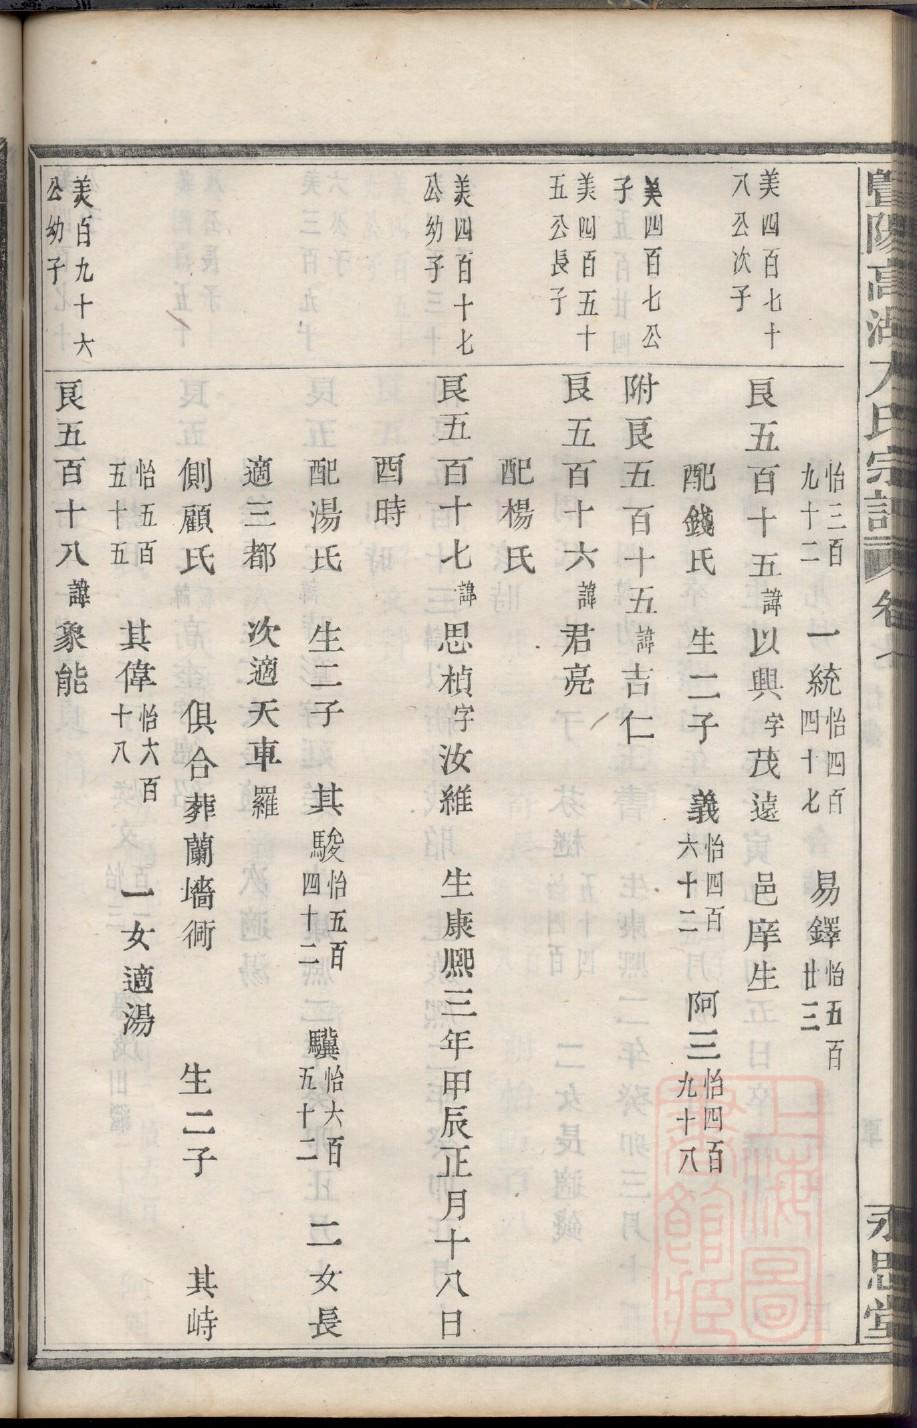 暨陽高湖方氏宗譜 卷七 永思堂
怡三百九十二 一統怡四百四十七 易鐸怡五百廿三
美四百七十八公次子 良五百十五諱以興字茂遠 邑庠生
配錢氏 生二子 義怡四百六十二 阿三怡四百九十八
美四百七公子 附良五百十五諱吉仁
美四百五十五公長子 良五百十六諱君亮
配楊氏
美四百十七公幼子 良五百十七諱思楨字汝維 生康熙三年甲辰正月十八日
酉時
配湯氏 生二子 其駿怡五百四十二 驥怡六百五十二 二女長
適三都 次適天車羅
側顧氏 俱合葬蘭墻衕 生二子 其峙
怡五百五十五 其偉怡六百十八 一女適湯
美百九十六公幼子 良五百十八諱象能